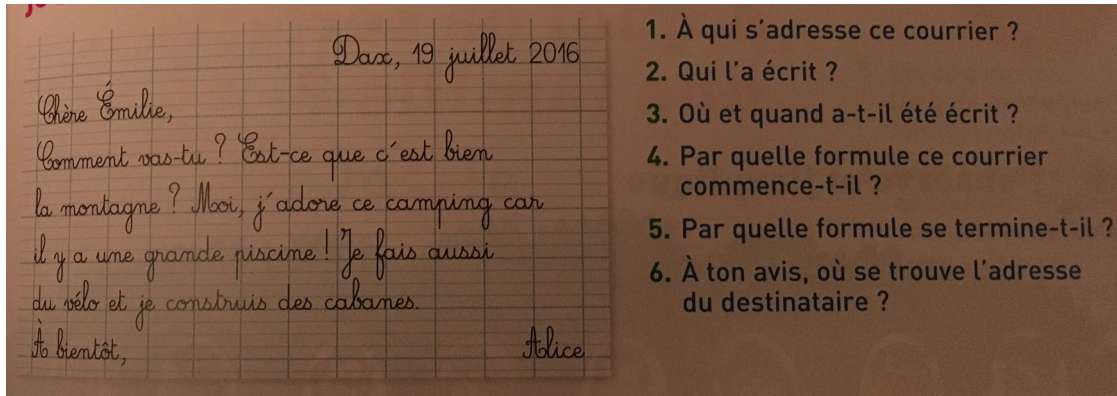 Dax, 19 juillet 2016
Chère Émilie,
Comment vas-tu ? Est-ce que c'est bien
la montagne ? Moi, j'adore ce camping car
il y a une grande piscine ! Je fais aussi
du vélo et je construis des cabanes.
À bientôt,
Alice
1. À qui s'adresse ce courrier ?
2. Qui l'a écrit ?
3. Où et quand a-t-il été écrit ?
4. Par quelle formule ce courrier
commence-t-il ?
5. Par quelle formule se termine-t-il ?
6. À ton avis, où se trouve l'adresse
du destinataire ?